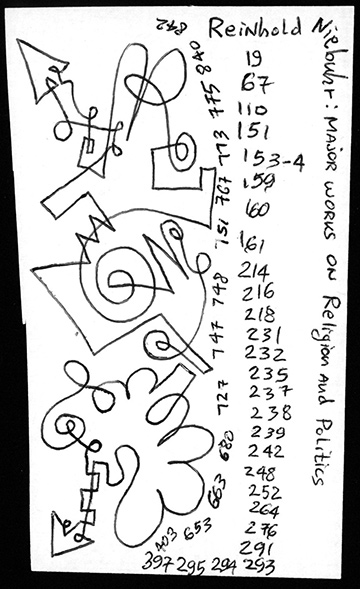 Reinhold Niebuhr: MAJOR WORKS ON Religion AND Politics
19
67
110
151
153-4
159
160
161
214
216
218
231
232
235
237
238
239
242
248
252
264
276
291
293
294
295
397
403
653
663
680
727
747
748
751
767
773
775
840
842